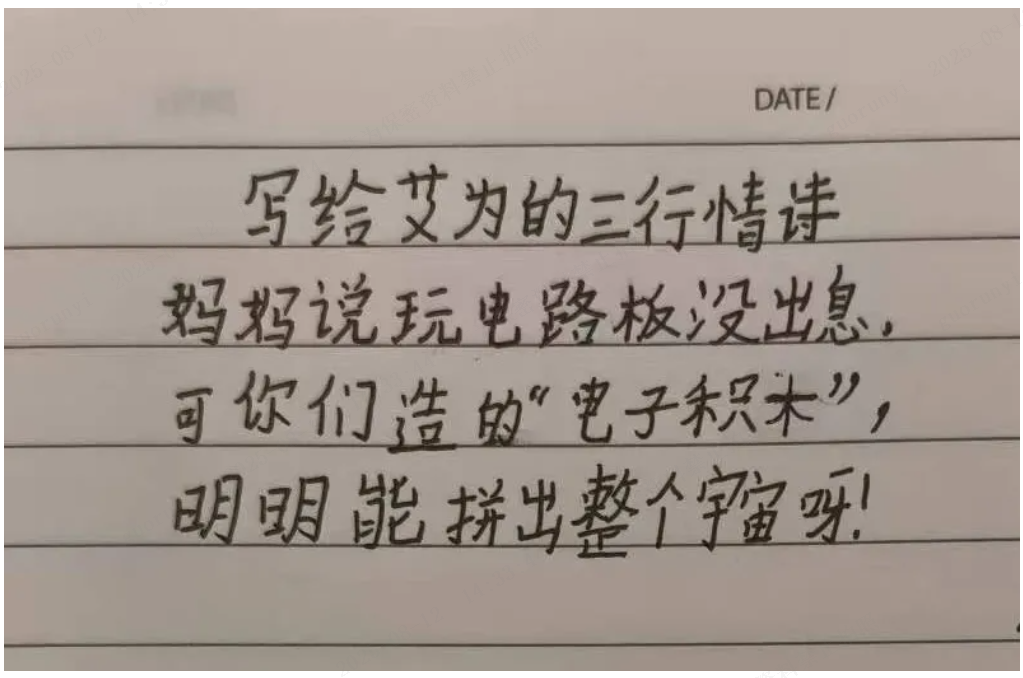 DATE /
写给艾为的三行情诗
妈妈说玩电路板没出息.
可你们造的“电子积木”,
明明能拼出整个宇宙呀!